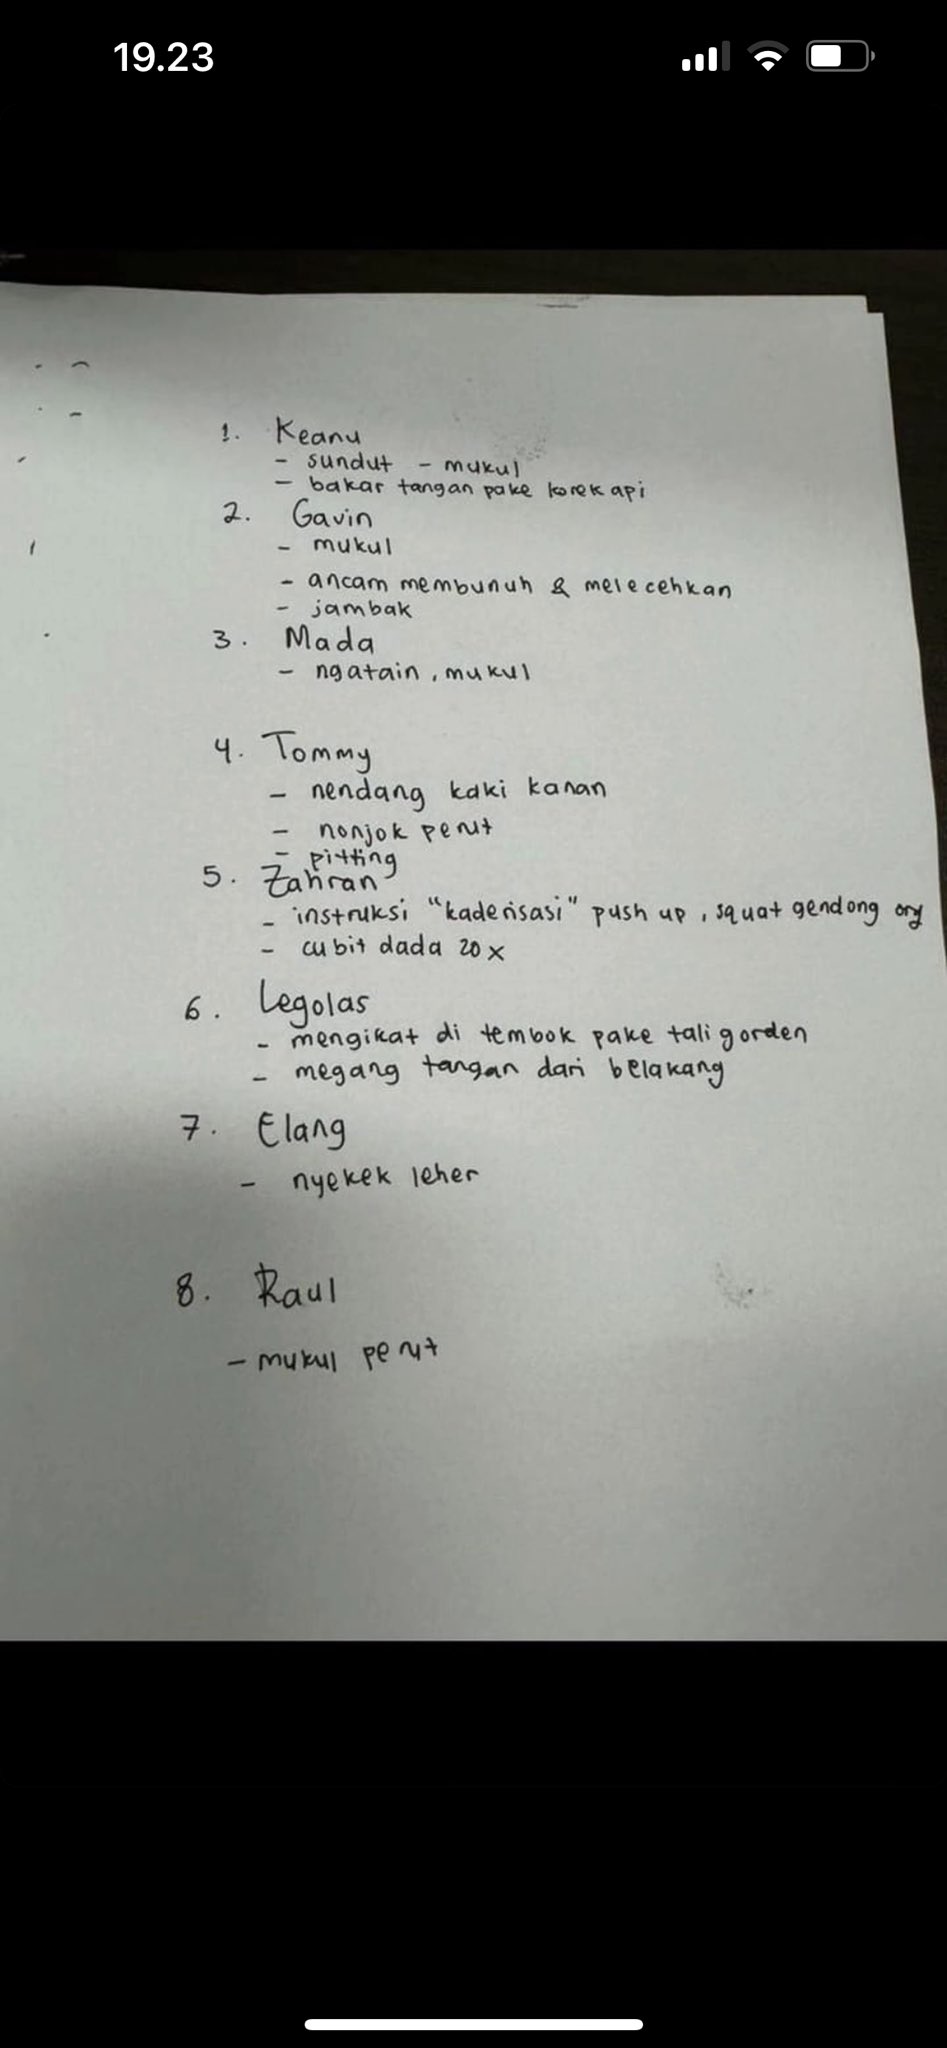 19.23
1. Keanu
- sundut - mukul
- bakar tangan pake korek api
2. Gavin
- mukul
- ancam membunuh & melecehkan
- jambak
3. Mada
- ngatain, mukul
4. Tommy
- nendang kaki kanan
- nonjok perut
- pitting
5. Zahran
- instruksi "kaderisasi" push up, squat gendong org
- cubit dada 20 x
6. Legolas
- mengikat di tembok pake tali gorden
- megang tangan dari belakang
7. Elang
- nyekek leher
8. Raul
- mukul perut